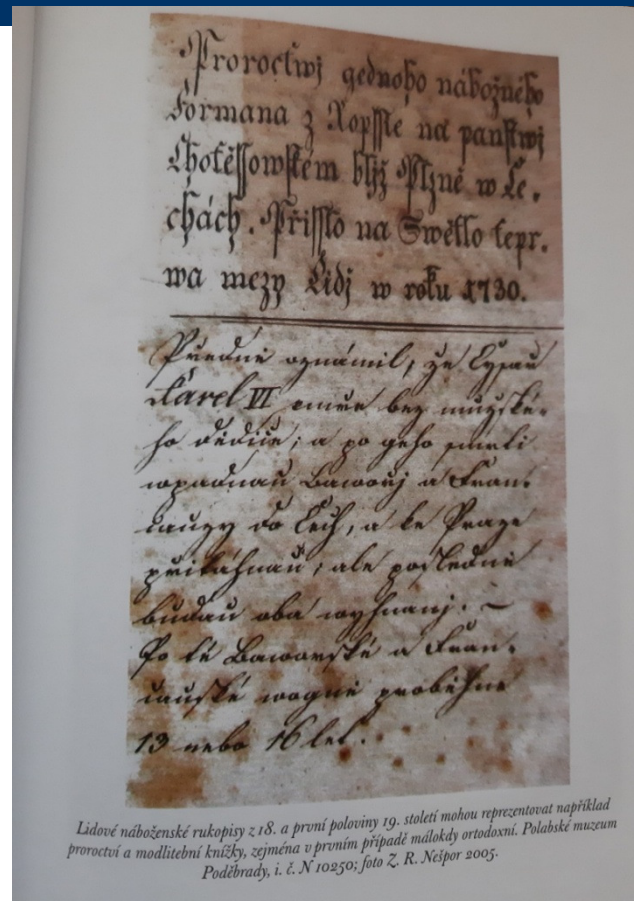 Proroctwj gednoho nábožného
Formana z Kopssle na panstwj
Chotěssowském bljž Plzně w Če-
chách. Přissło na Swětlo tepr-
wa mezy Lidj w roku 1730.
Předně oznámil, že Cysař
Karel VI umře bez mužské-
ho dědice; a po geho smrti
wpadnau Baworj a Fran-
cauzy do Čech, a ke Praze
přitáhnau; ale posledně
budau oba wyhnanj. –
Po té Baworské a Fran-
causké wogně proběhne
13 nebo 16 let.
Lidové náboženské rukopisy z 18. a první poloviny 19. století mohou reprezentovat například
proroctví a modlitební knížky, zejména v prvním případě málokdy ortodoxní. Polabské muzeum
Poděbrady, i. č. N 10250; foto Z. R. Nešpor 2005.